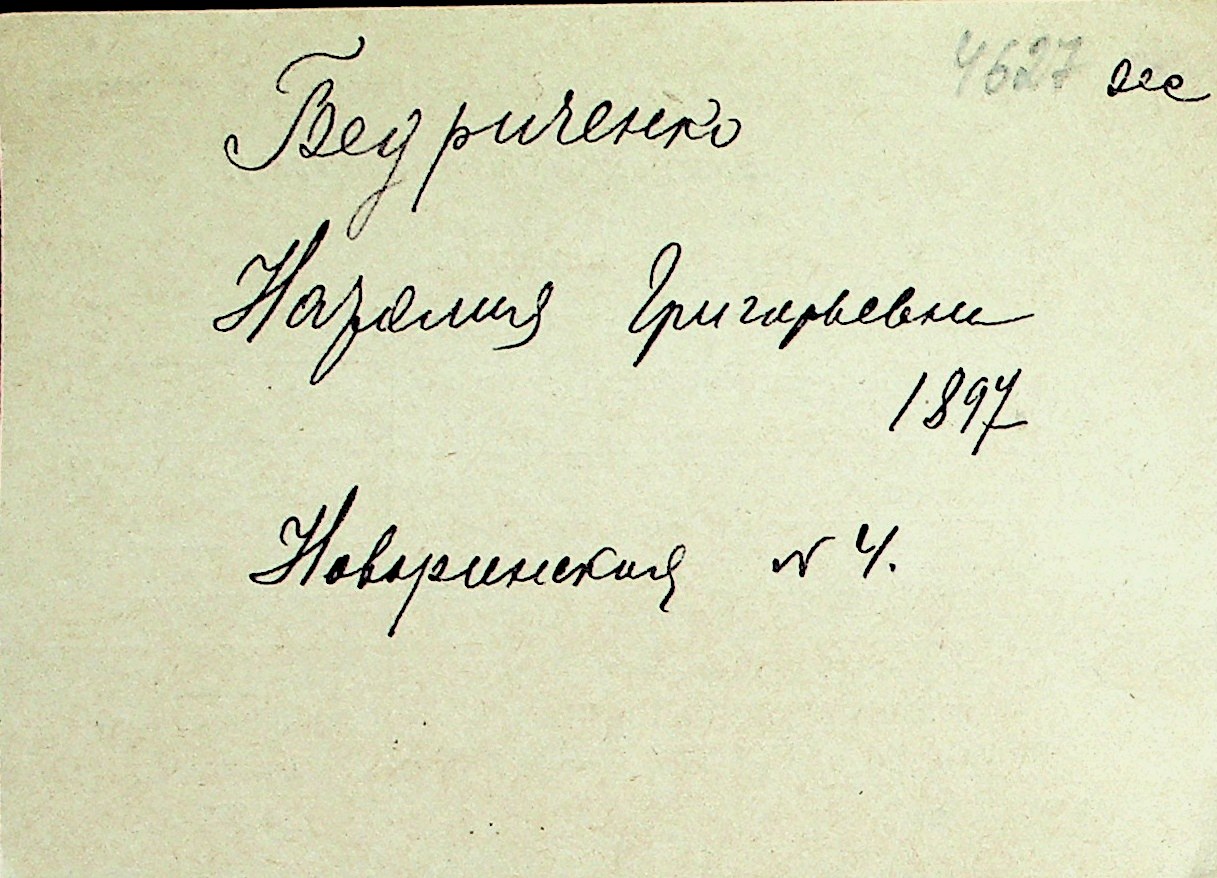 4627
Бедриченко
Наталия Григорьевна
1897
Наваринская № 4.